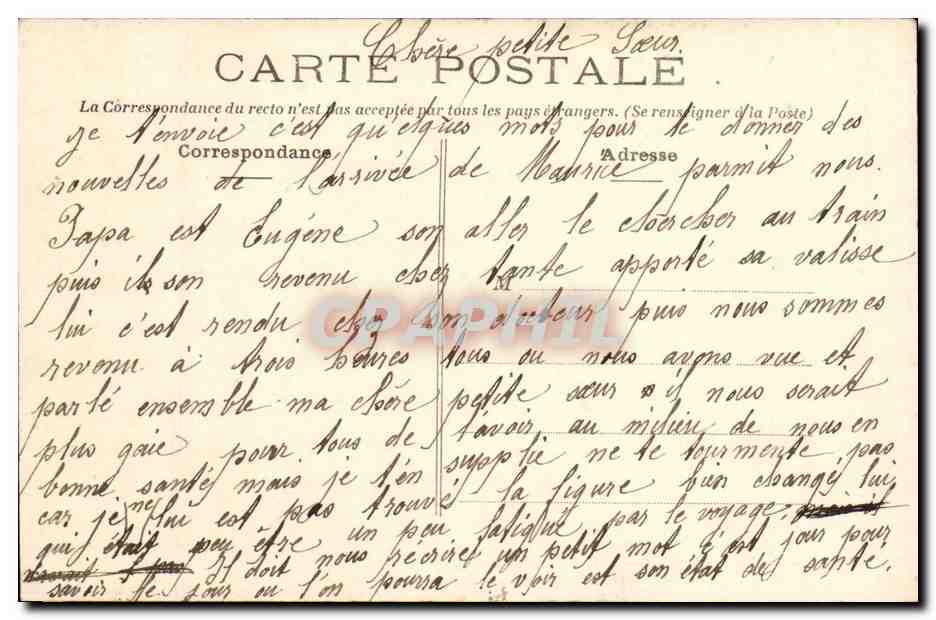 Chère petite Sœur
CARTE POSTALE.
La Correspondance du recto n'est pas acceptée par tous les pays étrangers. (Se renseigner à la Poste)
Je t'envoie c'est qu'elques mots pour te donner des
Correspondance Adresse
nouvelles de l'arrivée de Maurice parmit nous.
Papa est Eugène son aller le chercher au train
puis ils son revenu chez tante apporté sa valisse
M
CPAPHIL
lui c'est rendu chez son docteur puis nous sommes
revenu à trois heures tous ou nous avons vue et
parlé ensemble ma chère petite sœur il nous serait
plus gaie pour tous de t'avoir au milieu de nous en
bonne santé mais je t'en supplie ne te tourmente pas
car je ne lui est pas trouvé la figure bien changé lui
qui était peu être un peu fatigué par le voyage.
Il doit nous récrire un petit mot c'est jour pour
savoir le jour ou l'on pourra le voir est son état de santé.